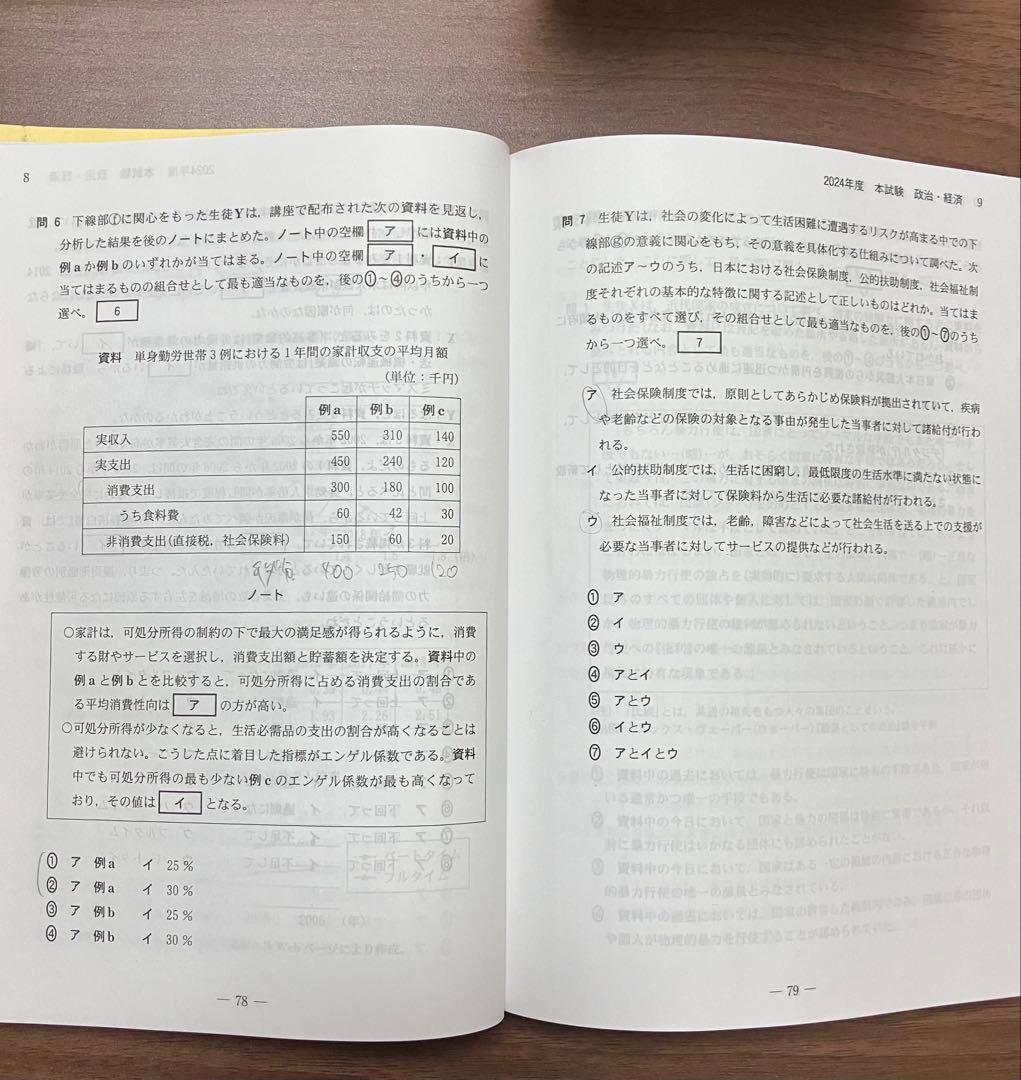 8
問6 下線部ⓕに関心をもった生徒Yは，講座で配布された次の資料を見返し，
分析した結果を後のノートにまとめた。ノート中の空欄 ア には資料中の
例aか例bのいずれかが当てはまる。ノート中の空欄 ア ・ イ に
当てはまるものの組合せとして最も適当なものを，後の①～④のうちから一つ
選べ。 6
資料 単身勤労世帯3例における1年間の家計収支の平均月額
(単位：千円)
例a 例b 例c
実収入 550 310 140
実支出 450 240 120
消費支出 300 180 100
うち食料費 60 42 30
非消費支出(直接税，社会保険料) 150 60 20
400 250 120
ノート
○家計は，可処分所得の制約の下で最大の満足感が得られるように，消費
する財やサービスを選択し，消費支出額と貯蓄額を決定する。資料中の
例aと例bとを比較すると，可処分所得に占める消費支出の割合であ
る平均消費性向は ア の方が高い。
○可処分所得が少なくなると，生活必需品の支出の割合が高くなることは
避けられない。こうした点に着目した指標がエンゲル係数である。資料
中でも可処分所得の最も少ない例cのエンゲル係数が最も高くなって
おり，その値は イ となる。
① ア 例a イ 25％
② ア 例a イ 30％
③ ア 例b イ 25％
④ ア 例b イ 30％
― 78 ―
2024年度 本試験 政治・経済 9
問7 生徒Yは，社会の変化によって生活困難に遭遇するリスクが高まる中での下
線部ⓖの意義に関心をもち，その意義を具体化する仕組みについて調べた。次
の記述ア～ウのうち，日本における社会保険制度，公的扶助制度，社会福祉制
度それぞれの基本的な特徴に関する記述として正しいものはどれか。当てはま
るものをすべて選び，その組合せとして最も適当なものを，後の①～⑦のうち
から一つ選べ。 7
ア 社会保険制度では，原則としてあらかじめ保険料が拠出されていて，疾病
や老齢などの保険の対象となる事由が発生した当事者に対して諸給付が行わ
れる。
イ 公的扶助制度では，生活に困窮し，最低限度の生活水準に満たない状態に
なった当事者に対して保険料から生活に必要な諸給付が行われる。
ウ 社会福祉制度では，老齢，障害などによって社会生活を送る上での支援が
必要な当事者に対してサービスの提供などが行われる。
① ア
② イ
③ ウ
④ アとイ
⑤ アとウ
⑥ イとウ
⑦ アとイとウ
― 79 ―